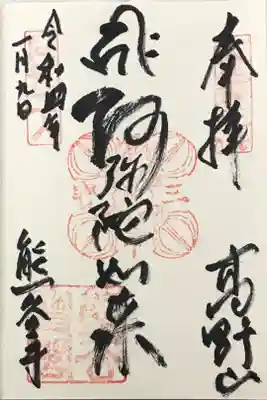 奉拝
高野山
阿弥陀如来
令和四年
一月九日
熊谷寺